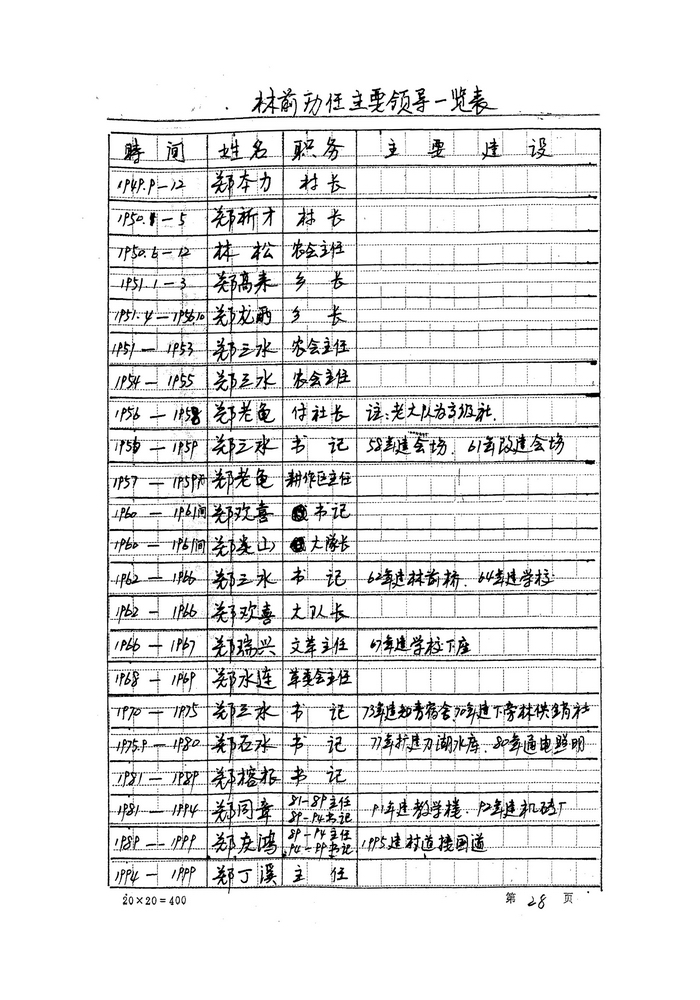 林前历任主要领导一览表
時间 姓名 职务 主要建设
1949.9—12 郑本力 村长
1950.1—5 郑新才 村长
1950.6—12 林松 农会主任
1951.1—3 郑高来 乡长
1951.4—1956.10 郑龙 乡长
1951—1953 郑三水 农会主任
1954—1955 郑三水 农会主任
1956—1958 郑老龟 付社长 注:老大队为高级社.
1958—1959 郑三水 书记 58年建会场.61年改建会场
1957—1959 郑老龟 耕作区主任
1960—1961间 郑欢喜 书记
1960—1961间 郑娄山 大隊长
1962—1966 郑三水 书记 62年建林前桥.64年建学校
1962—1966 郑欢喜 大队长
1966—1967 郑瑞兴 文革主任 67年建学校下座
1968—1969 郑水连 革委会主任
1970—1975 郑三水 书记 73年建知青宿舍,70年建下学林供销社
1975.9—1980 郑石水 书记 77年扩建刀湖水库.80年通电照明
1981—1989 郑榕根 书记
1981—1994 郑同章 81—89主任 89—94书记 91年建教学楼.92年建机砖厂
1989—1999 郑庆鸿 89—94主任 94—99书记 1995建村道接国道
1994—1999 郑丁溪 主任
20×20=400 第28页